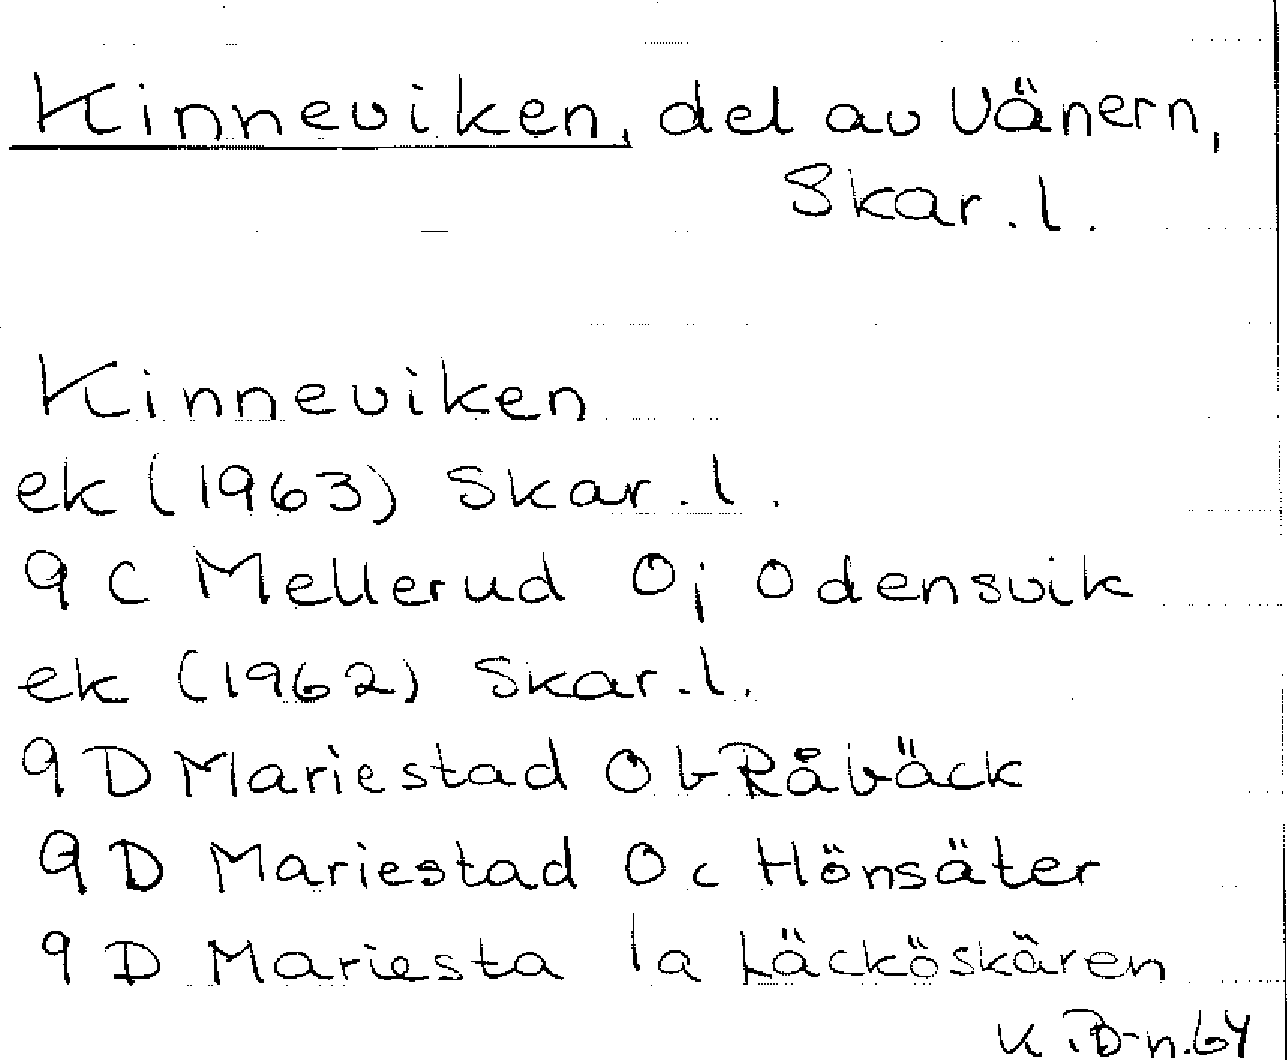 Kinneviken, del av Vänern,
Skar. l.
Kinneviken
ek (1963) Skar. l.
9 C Mellerud 0j Odensvik
ek (1962) Skar. l.
9 D Mariestad 0b Råbäck
9 D Mariestad 0c Hönsäter
9 D Mariesta 1a Läcköskären
K. B-n. 64